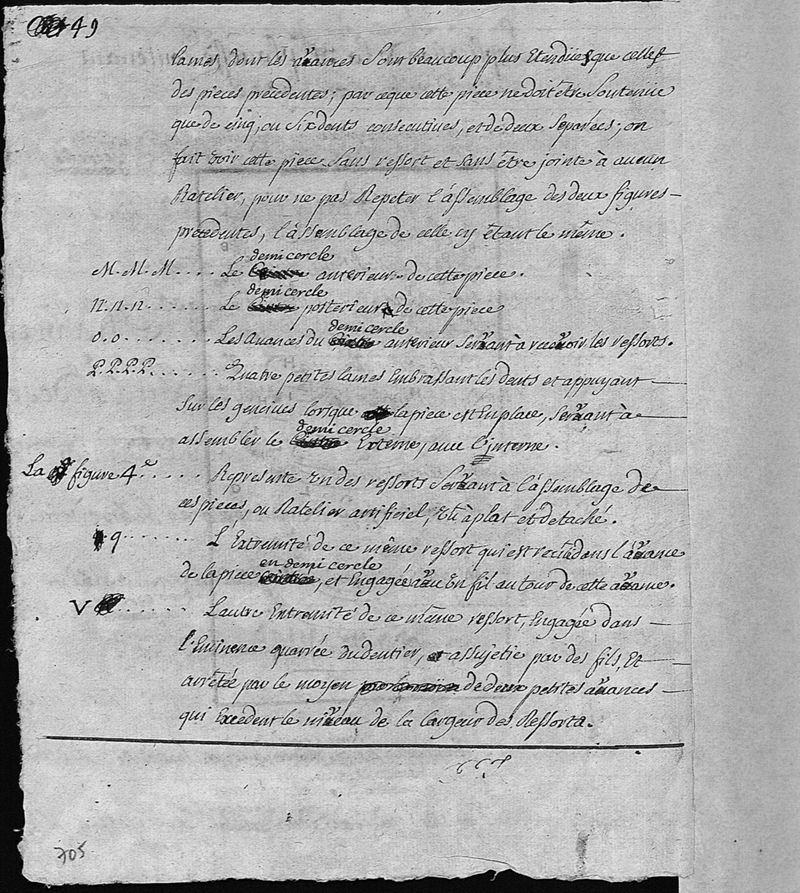 49
lames, dont les avances sont beaucoup plus Etendües que celles
des pieces precedentes; par ceque cette piece ne doit être Soutenüe
que de cinq, ou Six dents consecutives, et de deux Separées; on
fait voir cette piece Sans ressort et sans être jointe à aucun
Ratelier, pour ne pas Repeter l'assemblage des deux figures
precedentes, l'assemblage de celle cy Etant le même.
M. M. M .... Le demi cercle anterieur de cette piece.
n. n. n ...... Le demi cercle posterieur de cette piece
o. o ........ Les Avances du demi cercle anterieur Servant à recevoir les ressorts.
P. P. P. P. ...... Quatre petites lames Embrassant les dents et appuyant
Sur les gencives lorsque la piece est En place, Servant à
assembler le demi cercle Externe, avec l'interne.
La figure 4e ...... Represente Un des ressorts Servant à l'assemblage de
ces pieces, ou Ratelier artificiel, vû à plat et detaché.
q ........ L'Extremité de ce même ressort qui est recüe dans l'avance
de la piece en demi cercle, et Engagée avec Un fil autour de cette avance.
V ....... L'autre Extremité de ce même ressort, Engagée dans
l'Eminence quarrée du dentier, assujetie par des fils, Et
arrêtée par le moyen de deux petites avances
qui Excedent le niveau de la largeur des Ressorts.
705